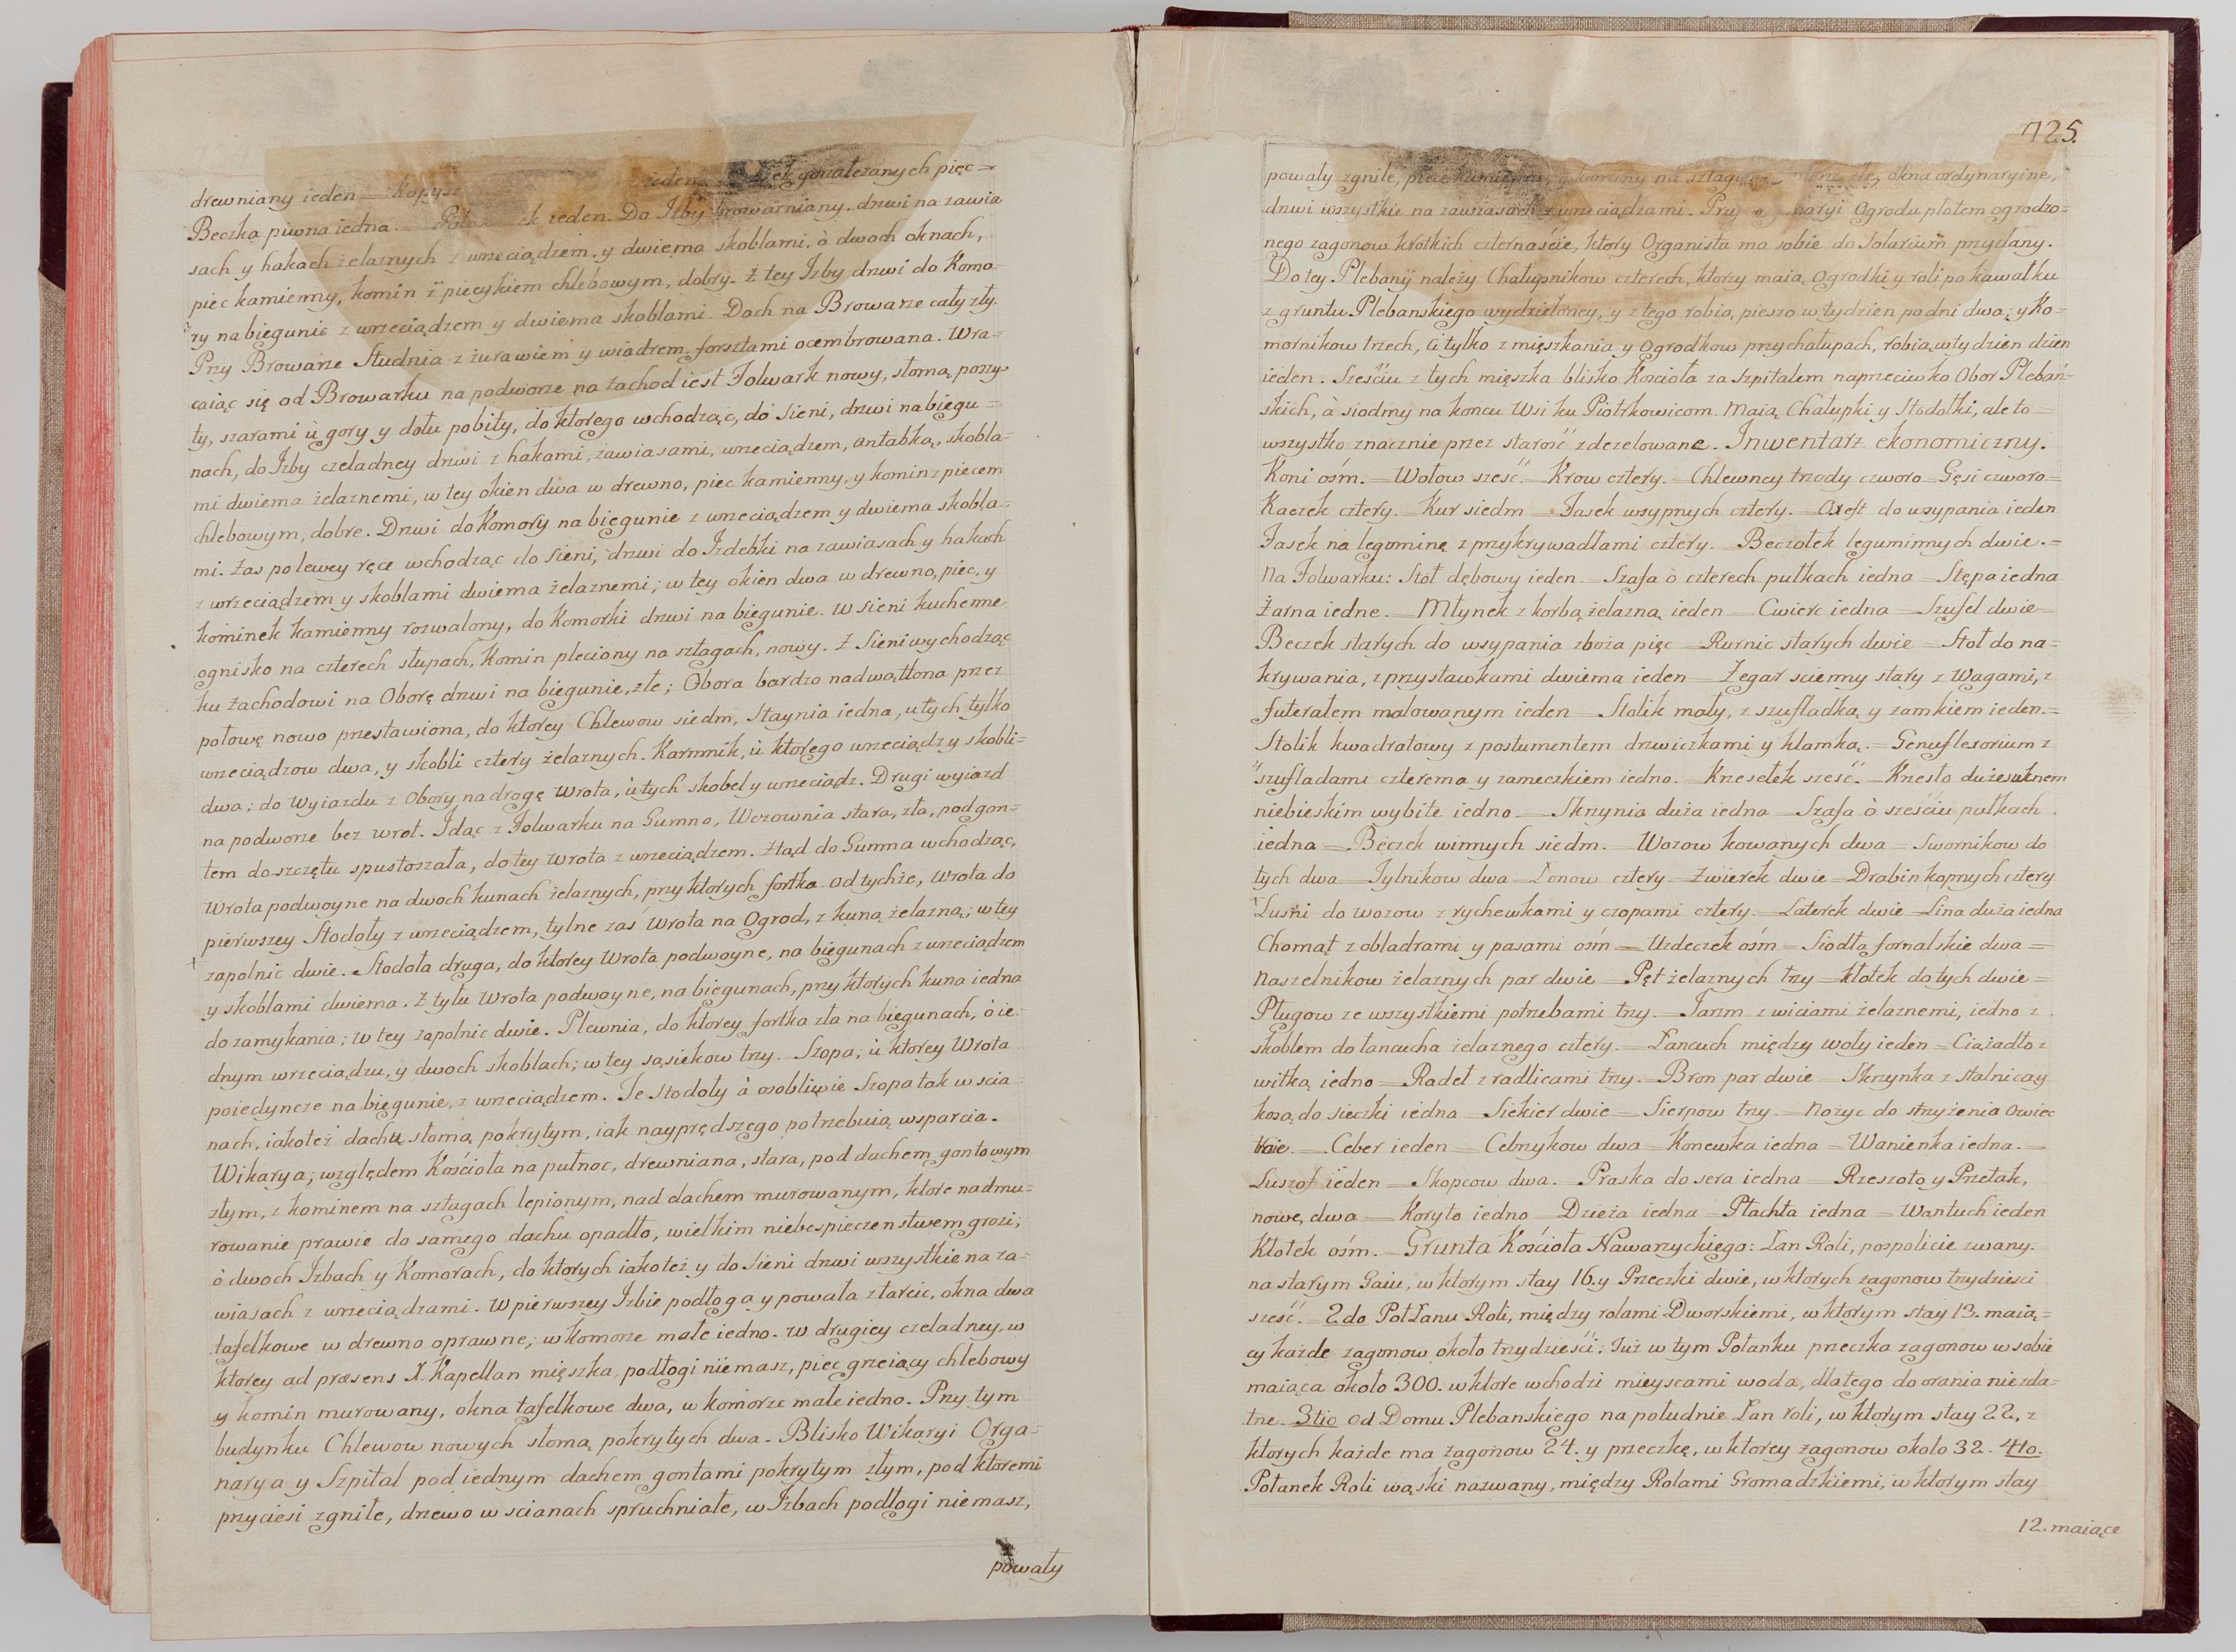 drewniany ieden = Kopysc ieden gorzałczanych pięc =
Beczka piwna iedna. = ieden. Do Izby browarniany. drzwi na zawia
sach y hakach żelaznych z wrzeciądzem, y dwiema skoblami, ò dwoch oknach,
piec kamienny, komin z piecykiem chlebowym, dobry. Z tey Izby drzwi do Komo-
ry na biegunie z wrzeciądzem y dwiema skoblami. Dach na Browarze cały zły.
Przy Browarze Studnia z żurawiem y wiadrem, forsztami ocembrowana. Wra-
caiąc się od Browarku na podworze na Zachod iest Folwark nowy, słomą poszy-
ty, szarami ù gory y dołu pobity, do ktorego wchodząc, do Sieni, drzwi na biegu =
nach, do Izby czeladney drzwi z hakami, zawiasami, wrzeciądzem, antabką, skobla-
mi dwiema żelaznemi, w tey okien dwa w drewno, piec kamienny, y komin z piecem
chlebowym, dobre. Drzwi do Komory na biegunie z wrzeciądzem y dwiema skobla-
mi. Zas po lewey ręce wchodząc do Sieni, drzwi do Izdebki na zawiasach y hakach
z wrzeciądzem y skoblami dwiema żelaznemi; w tey okien dwa w drewno, piec, y
kominek kamienny rozwalony, do Komorki drzwi na biegunie. W Sieni kuchenne
ognisko na czterech słupach, Komin pleciony na sztagach, nowy. Z Sieni wychodząc
ku Zachodowi na Oborę drzwi na biegunie, złe; Obora bardzo nadwątlona przez
połowę nowo przestawiona, do ktorey Chlewow siedm, Staynia iedna, u tych tylko
wrzeciądzow dwa, y skobli cztery żelaznych. Karmnik, ù ktorego wrzeciądz y skobli=
dwa; do Wyiazdu z Obory na drogę Wrota, ù tych skobel y wrzeciądz. Drugi wyiazd
na podworze bez wrot. Idąc z Folwarku na Gumno, Wozownia stara, zła, pod gon=
tem do szczętu spustoszała, do tey Wrota z wrzeciądzem. Ztąd do Gumna wchodząc,
Wrota podwoyne na dwoch kunach żelaznych, przy ktorych fortka. od tychże, Wrota do
pierwszey Stodoły z wrzeciądzem, tylne zas Wrota na Ogrod, z kuną żelazną; w tey
zapolnic dwie. Stodoła druga, do ktorey Wrota podwoyne, na biegunach z wrzeciądzem
y skoblami dwiema. Z tyłu Wrota podwoyne, na biegunach, przy ktorych kuna iedna
do zamykania; w tey zapolnic dwie. Plewnia, do ktorey fortka zła na biegunach, ò ie-
dnym wrzeciądzu, y dwoch skoblach; w tey sąsiekow trzy. Szopa, ù ktorey Wrota
poiedyncze na biegunie, z wrzeciądzem. Te Stodoły à osobliwie Szopa tak w scia-
nach, iakoteż dachu słomą pokrytym, iak nayprędszego potrzebuią wsparcia.
Wikarya; względem Kościoła na pułnoc, drewniana, stara, pod dachem gontowym
złym, z kominem na sztagach lepionym, nad dachem murowanym, ktore nadmu=
rowanie prawie do samego dachu opadło, wielkim niebespieczenstwem grozi;
ò dwoch Izbach y Komorach, do ktorych iakoteż y do Sieni drzwi wszystkie na za-
wiasach z wrzeciądzami. W pierwszey Izbie podłoga y powała z tarcic, okna dwa
tafelkowe w drewno oprawne; w komorze małe iedno. W drugiey czeladney, w
ktorey ad præsens X. Kapellan mięszka, podłogi niemasz, piec grzeiący chlebowy
y komin murowany, okna tafelkowe dwa, w komorze małe iedno. Przy tym
budynku Chlewow nowych słomą pokrytych dwa. Blisko Wikaryi Orga-
narya y Szpital pod iednym dachem gontami pokrytym złym, pod ktoremi
przyciesi zgniłe, drzewo w scianach spruchniałe, w Izbach podłogi niemasz,
powały
725.
powały zgniłe, piece kamienne, y kominy na sztagach złe, okna ordynaryine,
drzwi wszystkie na zawiasach z wrzeciądzami. Przy Ogrodu płotem ogrodzo=
nego zagonow krotkich czternaście, ktory Organista ma sobie do Solarium przydany.
Do tey Plebanij należy Chałupnikow czterech, ktorzy maią Ogrodki y roli po kawałku
z gruntu Plebanskiego wydzieloney, y z tego robią pieszo w tydzien po dni dwa; y Ko=
mornikow trzech, ci tylko z mięszkania y Ogrodkow przychałupach, robią w tydzien dzien
ieden. Szesciu z tych mięszka blisko Kościoła za Szpitalem naprzeciwko Obor Pleban-
skich, à siodmy na koncu Wsi ku Piotrkowicom. Maią Chałupki y Stodołki, ale to =
wszystko znacznie przez starość zdezelowane. Inwentarz ekonomiczny.
Koni ośm. = Wołow sześć. = Krow cztery. = Chlewney trzody czworo = Gęsi czworo=
Kaczek cztery. = Kur siedm = Fasek wsypnych cztery. = do wsypania ieden
Fasek na legominę z przykrywadłami cztery. = Beczołek leguminnych dwie. =
Na Folwarku: Stoł dębowy ieden. = Szafa ò czterech pułkach iedna = Stępa iedna
Żarna iedne. = Młynek z korbą żelazną ieden = Cwierc iedna = Szufel dwie =
Beczek starych do wsypania zboża pięc = Rurnic starych dwie = Stoł do na=
krywania, z przystawkami dwiema ieden = Zegar scienny stary z Wagami, z
futerałem malowanym ieden = Stolik mały, z szufladką y zamkiem ieden. =
Stolik kwadratowy z postumentem drzwiczkami y klamką. = Genuflexorium z
szufladami czterema y zameczkiem iedno. = Krzesełek sześć. = Krzesło duże suknem
niebieskim wybite iedno = Skrzynia duża iedna = Szafa ò sześciu pułkach
iedna = Beczek winnych siedm. = Wozow kowanych dwa = Swornikow do
tych dwa = Tylnikow dwa = Lonow cztery = Zwierek dwie = Drabin kopnych cztery
Lusni do wozow z rychewkami y czopami cztery. = Laterek dwie = Lina duża iedna
Chomąt z obladrami y pasami ośm = Uzdeczek ośm = Siodła fornalskie dwa =
Naszelnikow żelaznych par dwie = Pęt żelaznych trzy = Kłotek do tych dwie =
Pługow ze wszystkiemi potrzebami trzy. = Jarzm z wiciami żelaznemi, iedno z
skoblem do łancucha żelaznego cztery. = Łancuch między woły ieden = Ciążadło z
witką iedno = Radeł z radlicami trzy. = Bron par dwie = Skrzynka z stalnicą y
kosą do sieczki iedna = Siekier dwie = Sierpow trzy. = Nożyc do strzyżenia Owiec
= Ceber ieden = Cebrzykow dwa = Konewka iedna = Wanienka iedna. =
Luszof ieden = Skopcow dwa. = Praska do sera iedna = Rzeszoto y Przetak,
nowe, dwa = Koryto iedno = Dzieża iedna = Płachta iedna = Wantuch ieden
Kłotek ośm. = Grunta Kościoła Nawarzyckiego: Łan Roli, pospolicie zwany.
na starym Gaiu, w ktorym stay 16. y Przeczki dwie, w ktorych zagonow trzydziesci
sześć. = 2do Poł Łanu Roli, między rolami Dworskiemi, w ktorym stay 13. maią=
cy każde zagonow około trzydzieści; Już w tym Połanku przeczka zagonow w sobie
maiąca około 300. w ktore wchodzi mieyscami woda, dlatego do orania niezda=
tne. 3tio Od Domu Plebanskiego na południe Łan roli, w ktorym stay 22, z
ktorych każde ma zagonow 24. y przeczkę, w ktorey zagonow około 32. 4to.
Połanek Roli wąski nazwany, między Rolami Gromadzkiemi, w ktorym stay
12. maiące